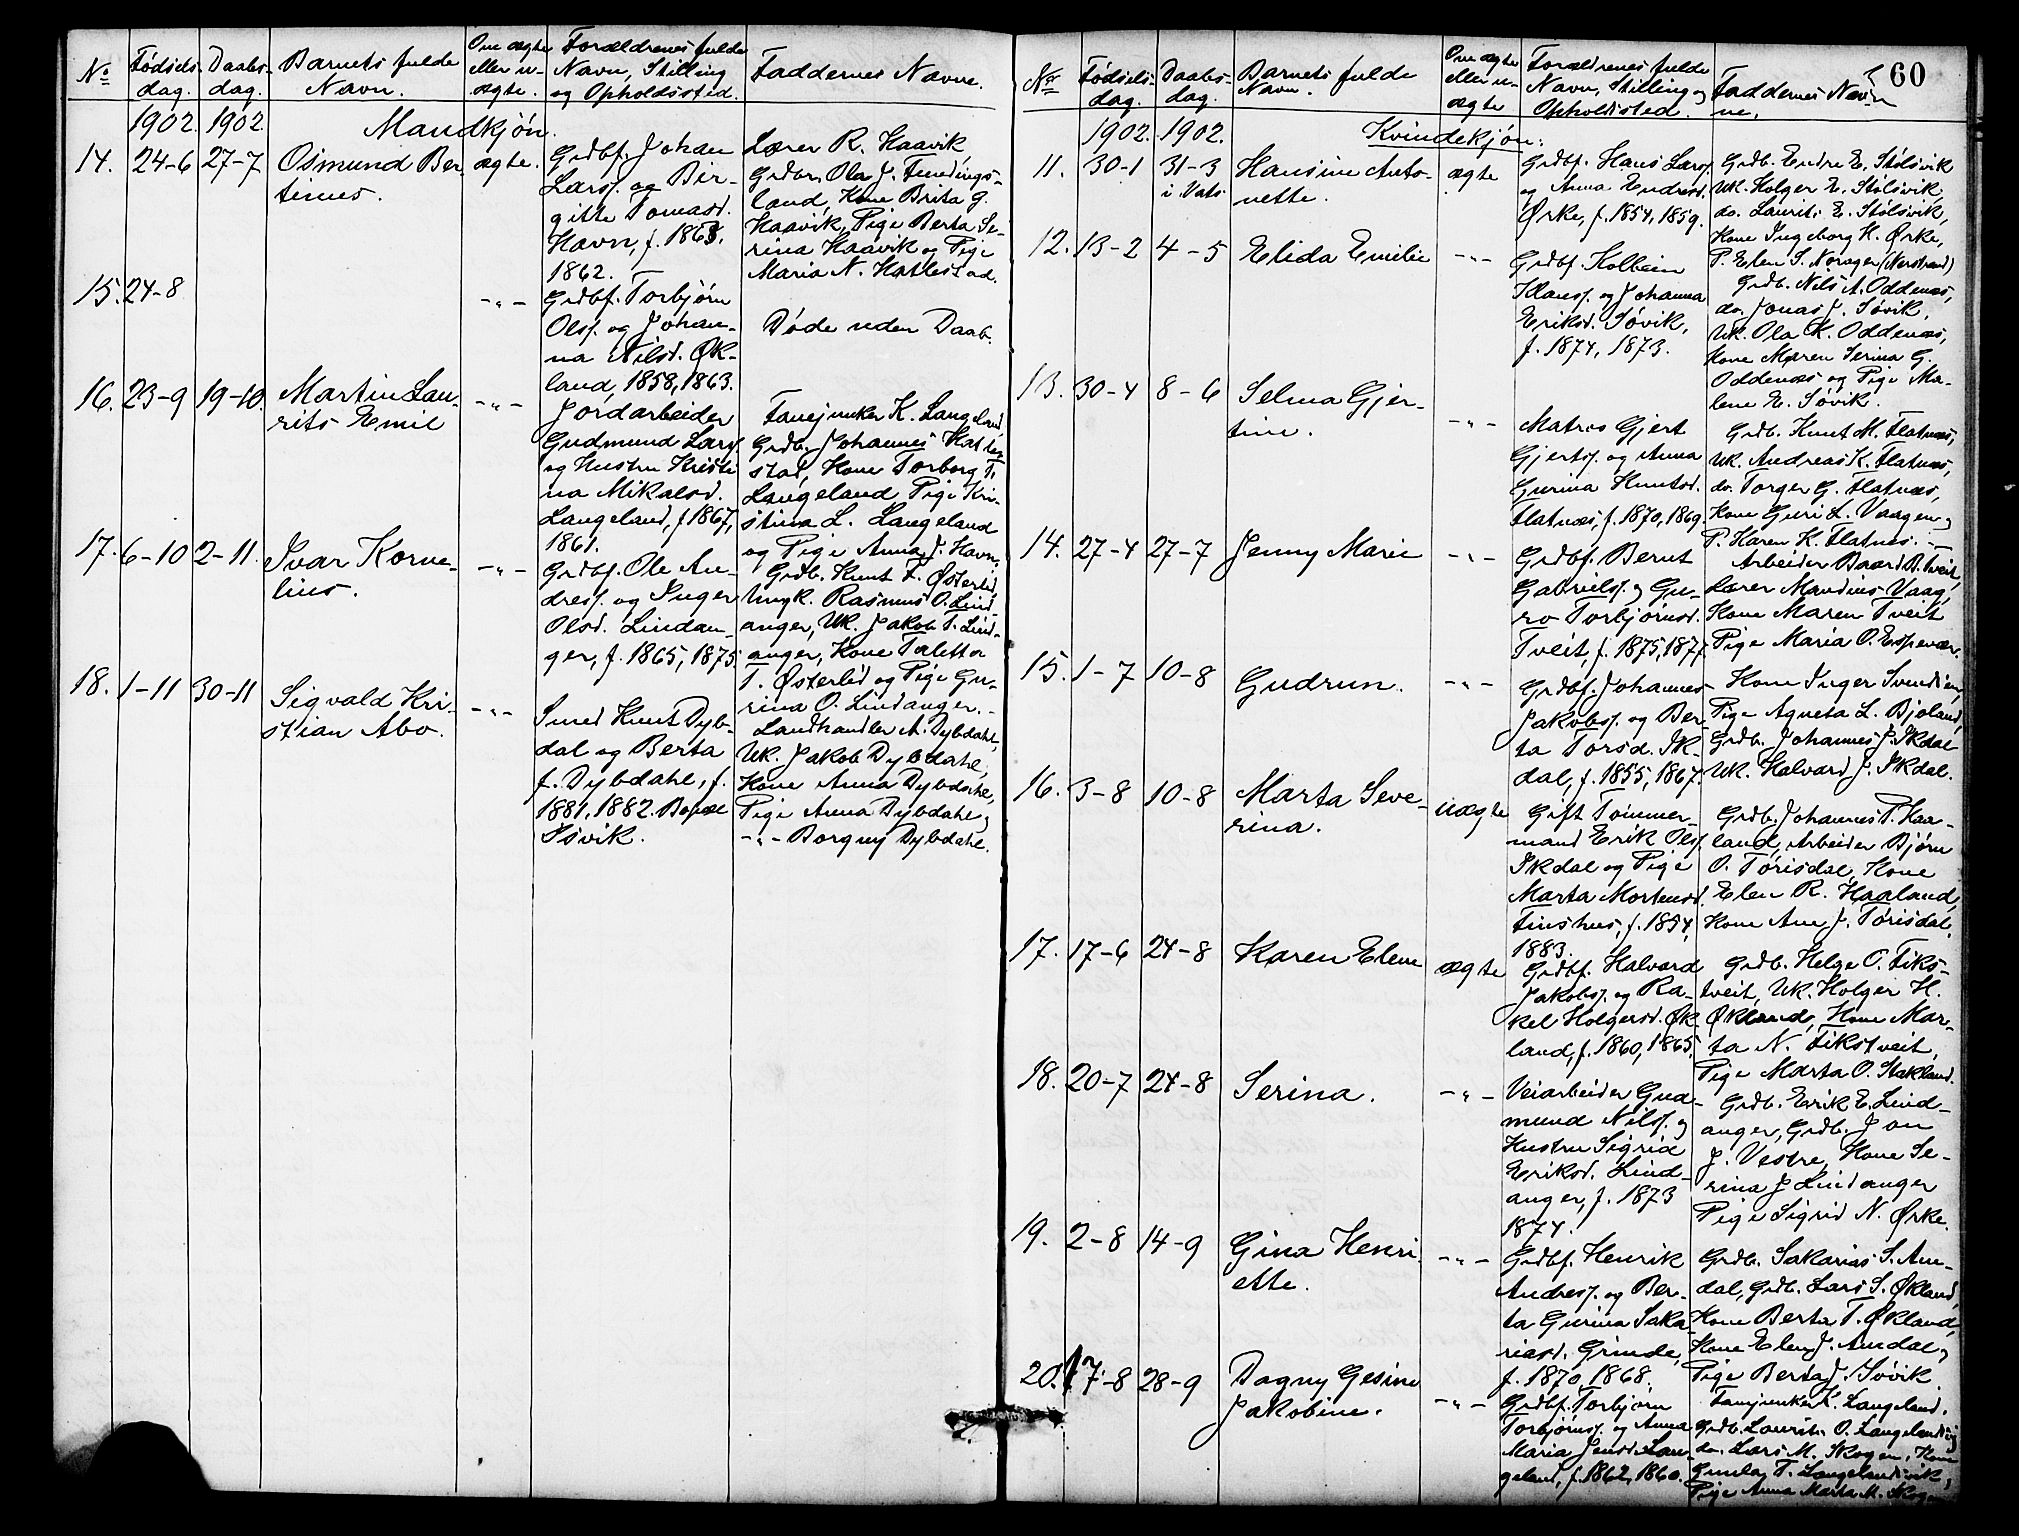 No
Fødsels-
dag.
Daabs-
dag.
Barnets fulde
Navn.
Om ægte
eller u-
ægte.
Forældrenes fulde
Navn, Stilling
og Opholdssted.
Faddernes Navne.
1902. 1902.
Mandkjøn.
14. 24-6 27-7 Osmund Ber
tinus.
ægte.
Grdbf. Johan
Larss. og Bir-
gitte Tomasd.
Havn, f. 1863,
1862.
Lærer R. Haavik
Grdbr. Ola J. Fundings-
land, Kone Brita G.
Haavik, Pige Berta Se-
rina Haavik og Pige
Maria N. Hattestad.
15. 24-8
-"-
Grdbf. Torbjørn
Olss. og Johan-
na Nilsd. Øk-
land, 1858, 1863.
Døde uden Daab.
16. 23-9 19-10. Martin Lau-
rits Emil
-"-
Jordarbeider
Gudmund Larss.
og Hustru Kristi
na Mikalsd.
Langeland, f. 1867,
1861.
Fanejunker K. Langeland,
Grdb. Johannes Hatte
stad, Kone Torborg T.
Langeland, Pige Kri-
stina L. Langeland
og Pige Anna J. Havn.
17. 6-10 2-11. Ivar Korne-
lius.
-"-
Grdbf. Ole An-
dress. og Inger
Olsd. Lindan-
ger, f. 1865, 1875.
Grdb. Knut T. Østerlid
Ungk. Rasmus O. Lind-
anger, Uk. Jakob T. Lind-
anger, Kone Taletta
T. Østerlid og Pige Gu-
rina O. Lindanger.
18. 1-11 30-11 Sigvald Kri-
stian Abo.
-"-
Smed Knut Dyb-
dal og Berta
f. Dybdahl, f.
1881, 1882.
Søvik.
Landhandler A. Dybdahl,
Uk. Jakob Dybdahl,
Kone Anna Dybdahl,
Pige Anna Dybdahl og
-"- Borgny Dybdahl.
60
No
Fødsels-
dag.
Daabs-
dag.
Barnets fulde
Navn.
Om ægte
eller u-
ægte
Forældrenes fulde
Navn, Stilling og
Opholdssted.
Faddernes Nav-
ne.
1902. 1902.
Kvindekjøn.
11. 30-1 31-3
i Vats
Hansine Anto-
nette.
ægte
Grdbf. Hans Larss.
og Anna Endresd.
Ørke, f. 1854, 1859.
Grdb. Endre E. Stølsvik
Uk. Holger E. Stølsvik,
do. Laurits E. Stølsvik,
Kone Ingeborg H. Ørke,
P. Elen S. Norager (Nerstrand)
12. 13-2 4-5 Elida Emilie
-"-
Grdbf. Kolbein
Klauss. og Johanna
Eriksd. Søvik,
f. 1874, 1873.
Grdb. Nils A. Oddenæs,
do. Jonas J. Søvik,
Uk. Ola K. Oddenæs,
Kone Maren Serina G.
Oddenæs og Pige Ma-
lene E. Søvik.
13. 30-4 8-6 Selma Gjer-
tine.
-"-
Matros Gjert
Gjertss. og Anna
Gurina Knutsd.
Flatnæs, f. 1870, 1869.
Grdb. Knut M. Flatnæs,
Uk. Andreas K. Flatnæs,
do. Torger G. Flatnæs,
Kone Guri L. Vaagen og
P. Karen K. Flatnes.
14. 27-4 27-7 Jenny Marie
-"-
Grdbf. Bernt
Gabrielss. og Gu-
ro Torbjørnsd.
Tveit, f. 1875, 1877.
Arbeider Baard B. Tveit,
Lærer Mandius Vaag,
Kone Maren Tveit
Pige Maria O. Espevær.
15. 1-7 10-8 Gudrun.
-"-
Grdbf. Johannes
Jakobss. og Ber-
ta Torsd. Ik-
dal, f. 1855, 1867.
Kone Inger Svendsen,
Pige Agneta L. Bjoland,
Grdb. Johannes J. Ikdal
Uk. Halvard J. Ikdal.
16. 3-8 10-8 Marta Seve-
rina.
uægte
Gift Tømmer-
mand Erik Olss.
Ikdal og Pige
Marta Mortensd.
Finshus, f. 1854,
1883.
Grdb. Johannes T. Haa-
land, Arbeider Bjørn
O. Tørisdal, Kone
Elen R. Haaland,
Kone Ane J. Tørisdal.
17. 17-6 24-8 Karen Elene
ægte
Grdbf. Halvard
Jakobss. og Ra-
kel Holgersd. Øk-
land, f. 1860, 1865.
Grdb. Helge O. Fiks-
tveit, Uk. Holger H.
Økland, Kone Mar-
ta N. Fikstveit,
Pige Marta O. Stakland.
18. 20-7 24-8 Serina.
-"-
Veiarbeider Gud-
mund Nilss. og
Hustru Sigrid
Eriksd. Lind-
anger, f. 1873
1874.
Grdb. Erik E. Lind-
anger, Grdb. Jon
J. Vestre, Kone Se-
rina J Lindanger
Pige Sigrid N. Ørke.
19. 2-8 14-9 Gina Henri-
ette.
-"-
Grdbf. Henrik
Andress. og Ber-
ta Gurina Saka-
riasd. Grinde,
f. 1870, 1868.
Grdb. Sakarias S. Am-
dal, Grdb. Lars S. Økland,
Kone Berta T. Økland,
Kone Elen J. Amdal og
Pige Berta J. Søvik.
20. 17-8 28-9 Dagny Gesine
Jakobine.
-"-
Grdbf. Torbjørn
Torbjørnss. og Anna
Maria Jensd. Lan-
geland, f. 1862, 1860.
Fanejunker K. Langeland.
Grdb. Laurits O. Langelandsvig
do. Lars M. Skogen, Kone
Gunla T. Langelandsvik,
Pige Anna Marta M. Skogen